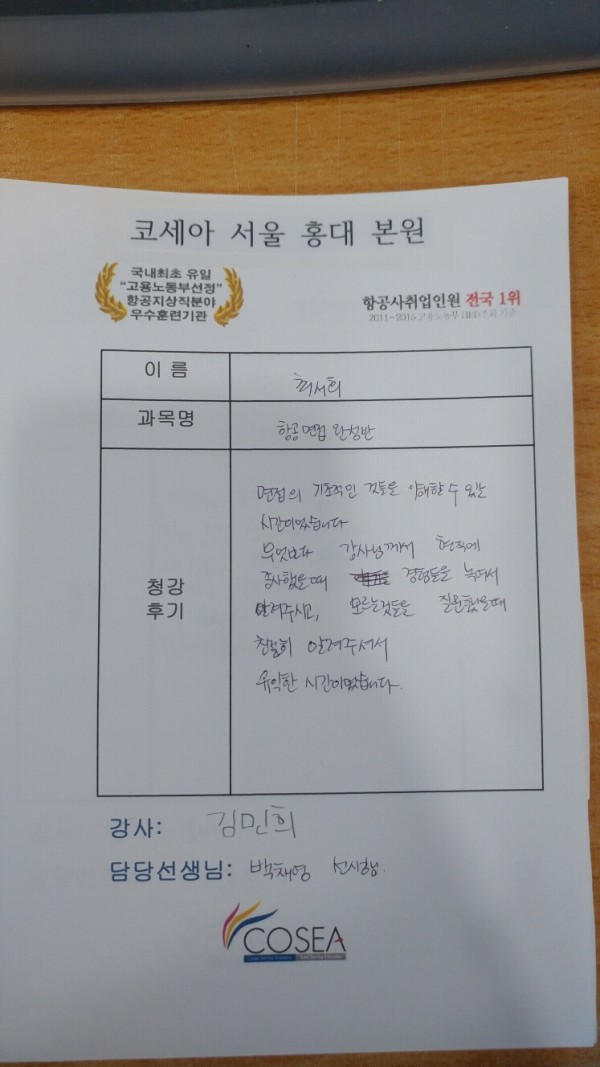 코세아 서울 홍대 본원
국내최초 유일
"고용노동부선정"
항공지상직분야
우수훈련기관
항공사취업인원 전국 1위
2011~2015 고용노동부 HRD조회 기준
이 름
최서희
과목명
항공면접 완성반
청강
후기
면접의 기초적인 것들을 이해할 수 있는
시간이었습니다
무엇보다 강사님께서 현직에
종사했을때 경험들을 녹여서
알려주시고, 모르는것들을 질문했을때
친절히 알려주셔서
유익한 시간이었습니다.
강사: 김민희
담당선생님: 백채영 선생님
COSEA